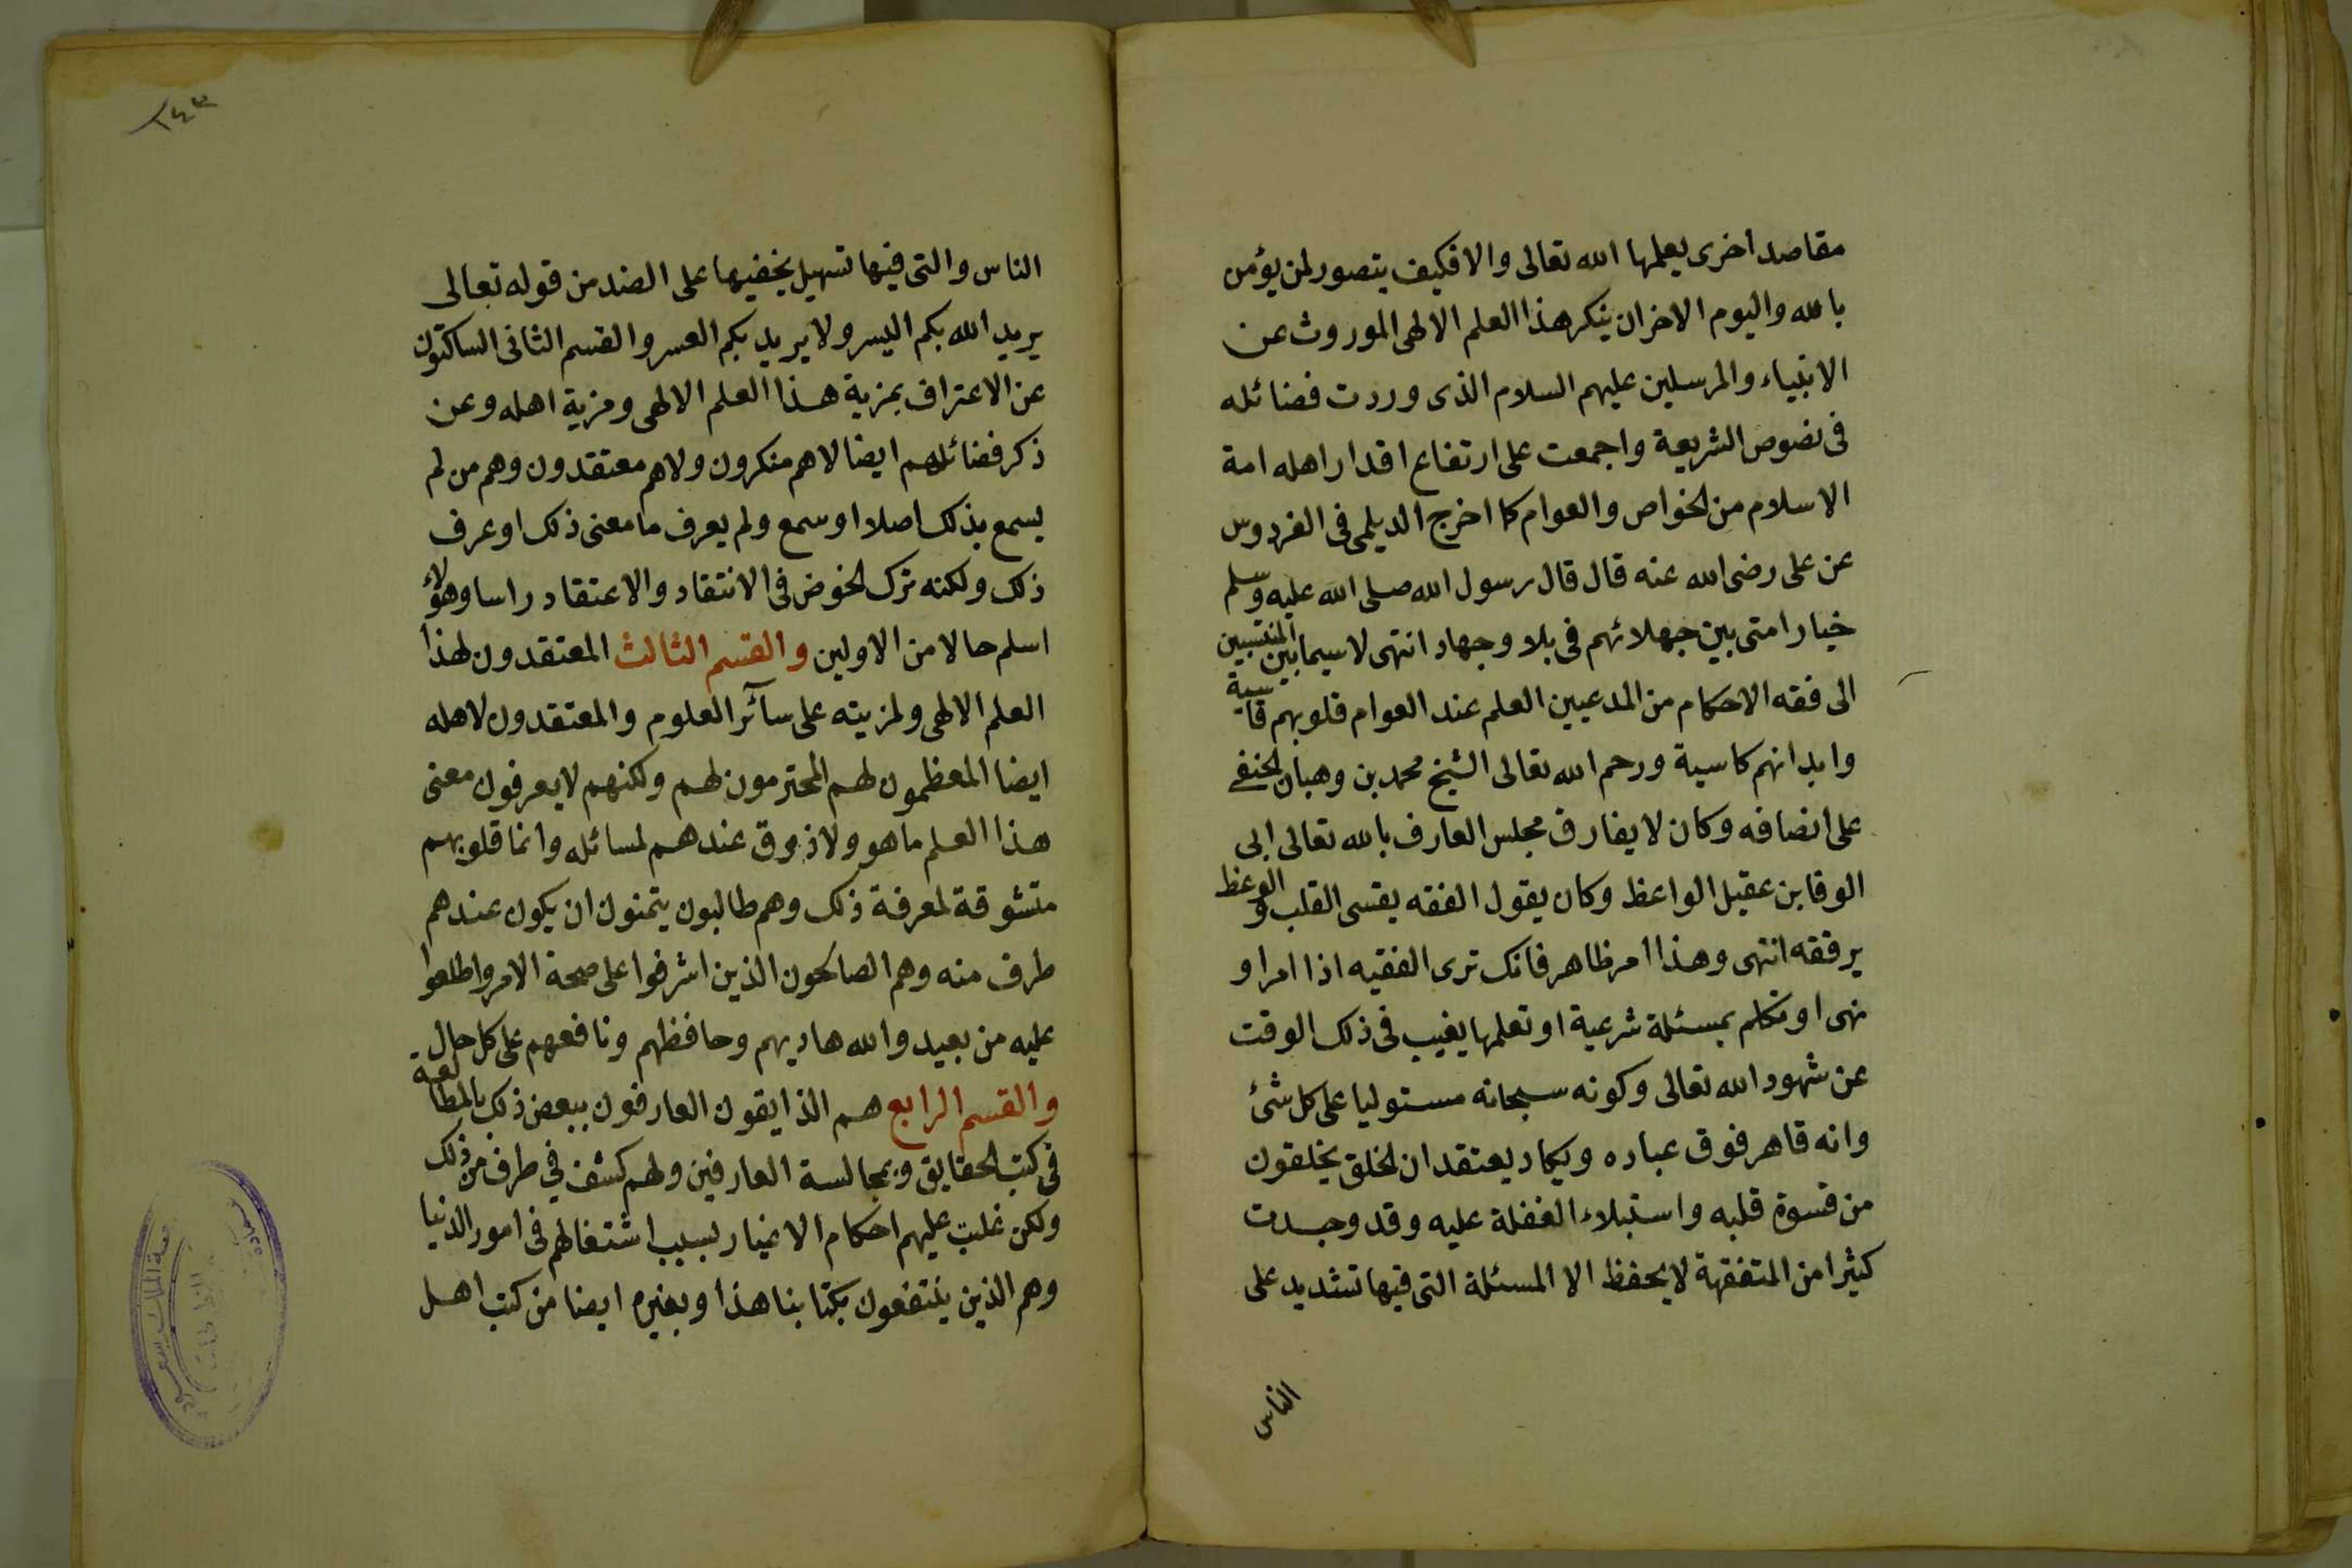 مقاصد اخرى يعلمها الله تعالى والا فكيف يتصور لمن يؤمن
بالله واليوم الاخر ان ينكر هذا العلم الالهى الموروث عن
الانبياء والمرسلين عليهم السلام الذى وردت فضائله
فى نصوص الشريعة واجمعت على ارتفاع اقدار اهله امة
الاسلام من الخواص والعوام كما اخرج الديلمى فى الفردوس
عن على رضى الله عنه قال قال رسول الله صلى الله عليه وسلم
خيار امتى بين جهلائهم فى بلا وجهاد انتهى لا سيما بين المنتسبين
الى فقه الاحكام من المدعيين العلم عند العوام قلوبهم قاسية
وابدانهم كاسية ورحم الله تعالى الشيخ محمد بن وهبان الحنفى
على انصافه وكان لا يفارق مجلس العارف بالله تعالى ابى
الوقا بن عقيل الواعظ وكان يقول الفقه يقسى القلب والوعظ
يرققه انتهى وهذا امر ظاهر فانك ترى الفقيه اذا امر او
نهى او تكلم بمسئلة شرعية او تعلمها يغيب فى ذلك الوقت
عن شهود الله تعالى وكونه سبحانه مستوليا على كل شئ
وانه قاهر فوق عباده ويكاد يعتقد ان الخلق يخلقون
من قسوة قلبه واستيلاء الغفلة عليه وقد وجدت
كثيرا من المتفقهة لا يحفظ الا المسئلة التى فيها تشديد على
الناس
٢٤٣
الناس والتى فيها تسهيل يخفيها على الضد من قوله تعالى
يريد الله بكم اليسر ولا يريد بكم العسر والقسم الثانى الساكتون
عن الاعتراف بمزية هذا العلم الالهى ومزية اهله وعن
ذكر فضائلهم ايضا لا هم منكرون ولا هم معتقدون وهم من لم
يسمع بذلك اصلا او سمع ولم يعرف ما معنى ذلك او عرف
ذلك ولكنه ترك الخوض فى الانتقاد والاعتقاد راسا وهؤلاء
اسلم حالا من الاولين والقسم الثالث المعتقدون لهذا
العلم الالهى ولمزيته على سآئر العلوم والمعتقدون لاهله
ايضا المعظمون لهم المحترمون لهم ولكنهم لا يعرفون معنى
هذا العلم ما هو ولا ذوق عندهم لمسائله وانما قلوبهم
متشوقة لمعرفة ذلك وهم طالبون يتمنون ان يكون عندهم
طرف منه وهم الصالحون الذين اشرفوا على صحة الامر واطلعوا
عليه من بعيد والله هاديهم وحافظهم ونافعهم على كل حال
والقسم الرابع هم الذايقون العارفون ببعض ذلك بالمطالعة
فى كتب الحقايق وبمجالسة العارفين ولهم كشف فى طرف من ذلك
ولكن غلبت عليهم احكام الاغيار بسبب اشتغالهم فى امور الدنيا
وهم الذين ينتفعون بكتابنا هذا وبغيره ايضا من كتب اهل